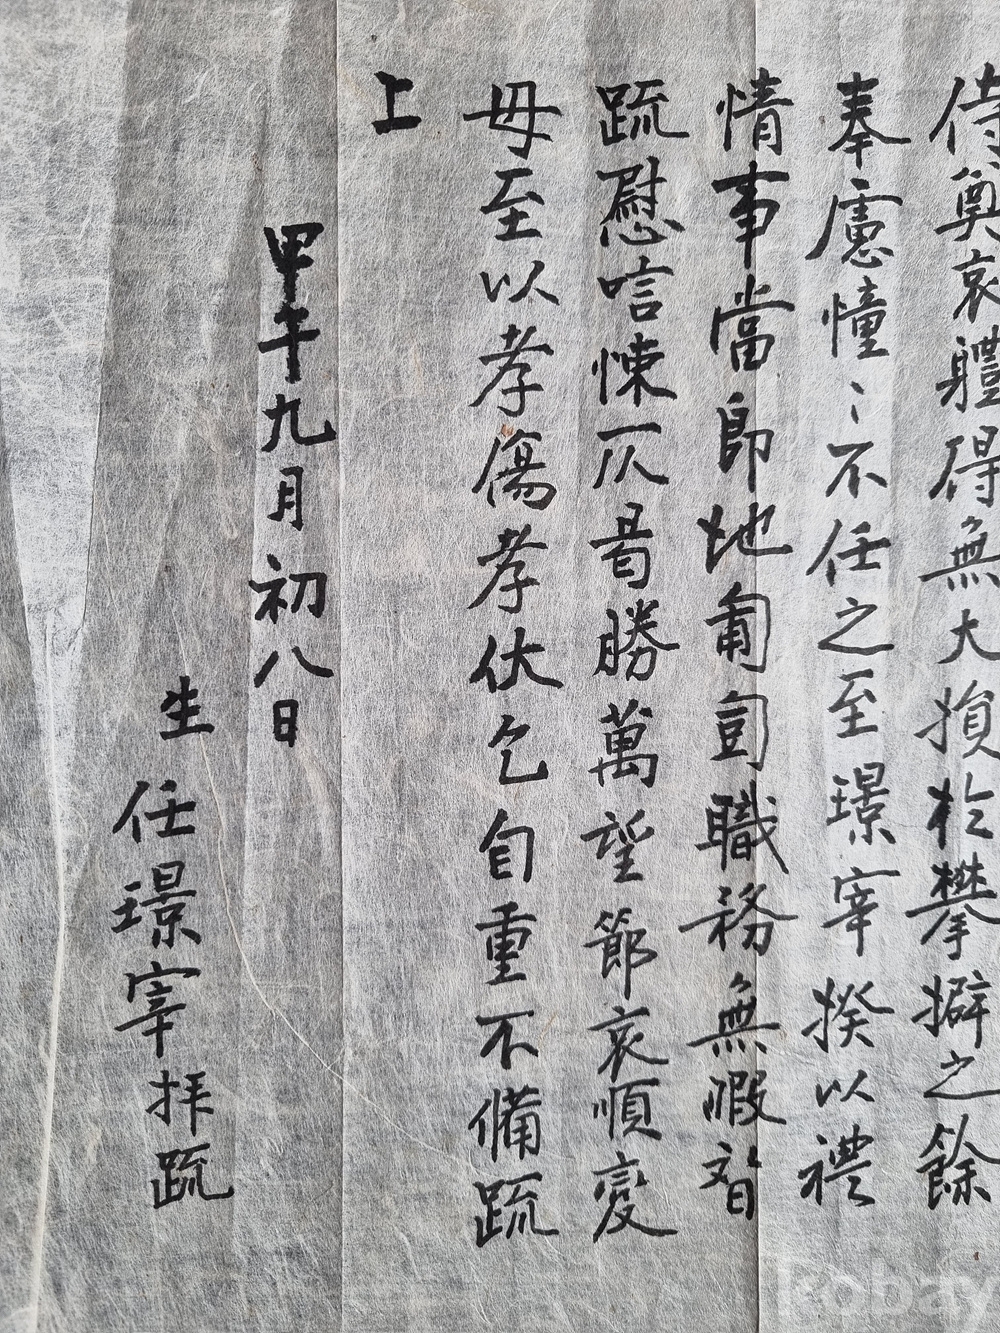 侍奠哀軆得無大損於攀擗之餘
奉慮憧〻不任之至璟宰揆以禮
情事當卽地匍訇職務無暇替
䟽慰唁悚仄曷勝萬望節哀順變
毋至以孝傷孝伏乞自重不備䟽
上
甲午九月初八日
生 任璟宰拜䟽
kobay